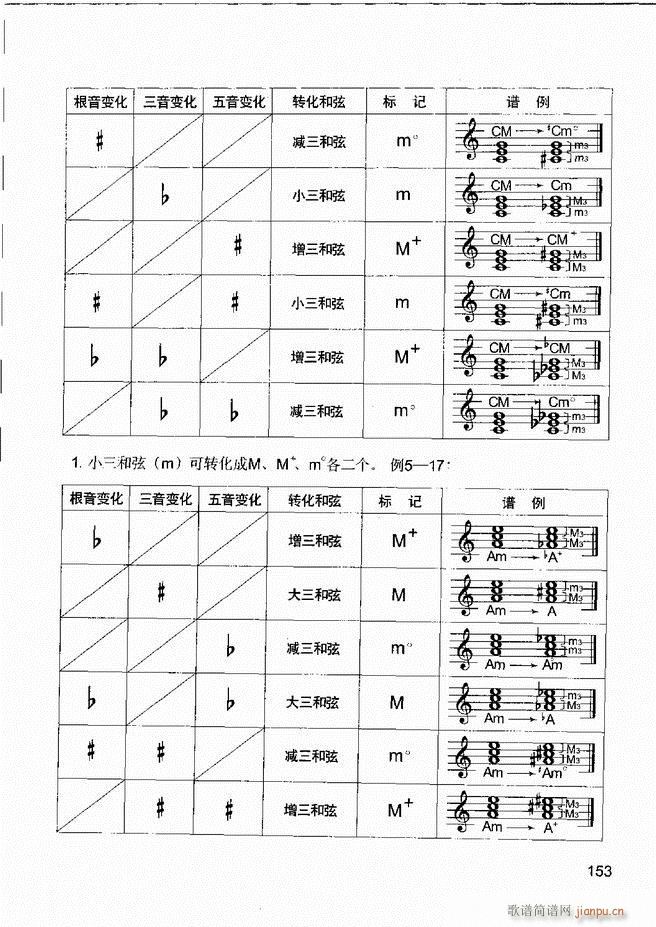 根音变化 三音变化 五音变化 转化和弦 标 记 谱 例
♯ 减三和弦 m° CM → ♯Cm° m3 m3
♭ 小三和弦 m CM → Cm M3 m3
♯ 增三和弦 M⁺ CM → CM⁺ M3 M3
♯ ♯ 小三和弦 m CM → ♯Cm M3 m3
♭ ♭ 增三和弦 M⁺ CM → ♭CM M3 M3
♭ ♭ 减三和弦 m° CM → Cm° m3 m3
1. 小三和弦（m）可转化成M、M⁺、m°各二个。 例5—17：
根音变化 三音变化 五音变化 转化和弦 标 记 谱 例
♭ 增三和弦 M⁺ M3 M3 Am → ♭A⁺
♯ 大三和弦 M m3 M3 Am → A
♭ 减三和弦 m° m3 m3 Am → Am
♭ ♭ 大三和弦 M m3 M3 Am → ♭A
♯ ♯ 减三和弦 m° M3 M3 Am → ♯Am°
♯ ♯ 增三和弦 M⁺ M3 M3 Am → A⁺
153
歌谱简谱网 jianpu.cn